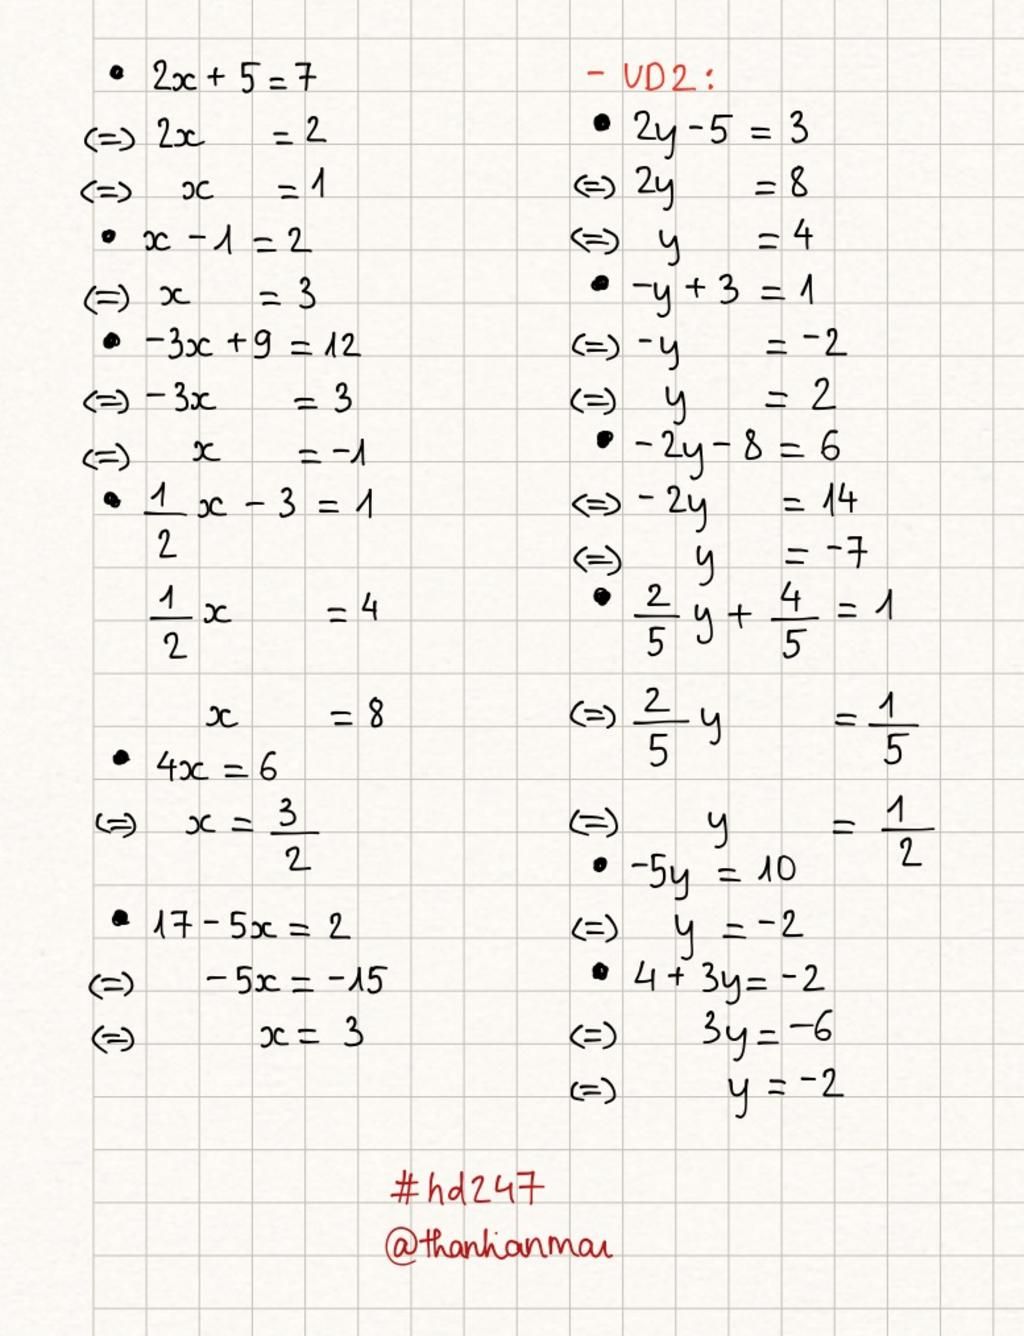 • 2x + 5 = 7
(=) 2x = 2
(=) x = 1
• x - 1 = 2
(=) x = 3
• -3x + 9 = 12
(=) -3x = 3
(=) x = -1
• 1/2 x - 3 = 1
1/2 x = 4
x = 8
• 4x = 6
(=) x = 3/2
• 17 - 5x = 2
(=) -5x = -15
(=) x = 3
- VD2:
• 2y - 5 = 3
(=) 2y = 8
(=) y = 4
• -y + 3 = 1
(=) -y = -2
(=) y = 2
• -2y - 8 = 6
(=) -2y = 14
(=) y = -7
• 2/5 y + 4/5 = 1
(=) 2/5 y = 1/5
(=) y = 1/2
• -5y = 10
(=) y = -2
• 4 + 3y = -2
(=) 3y = -6
(=) y = -2
#hd247
@thanhanmai